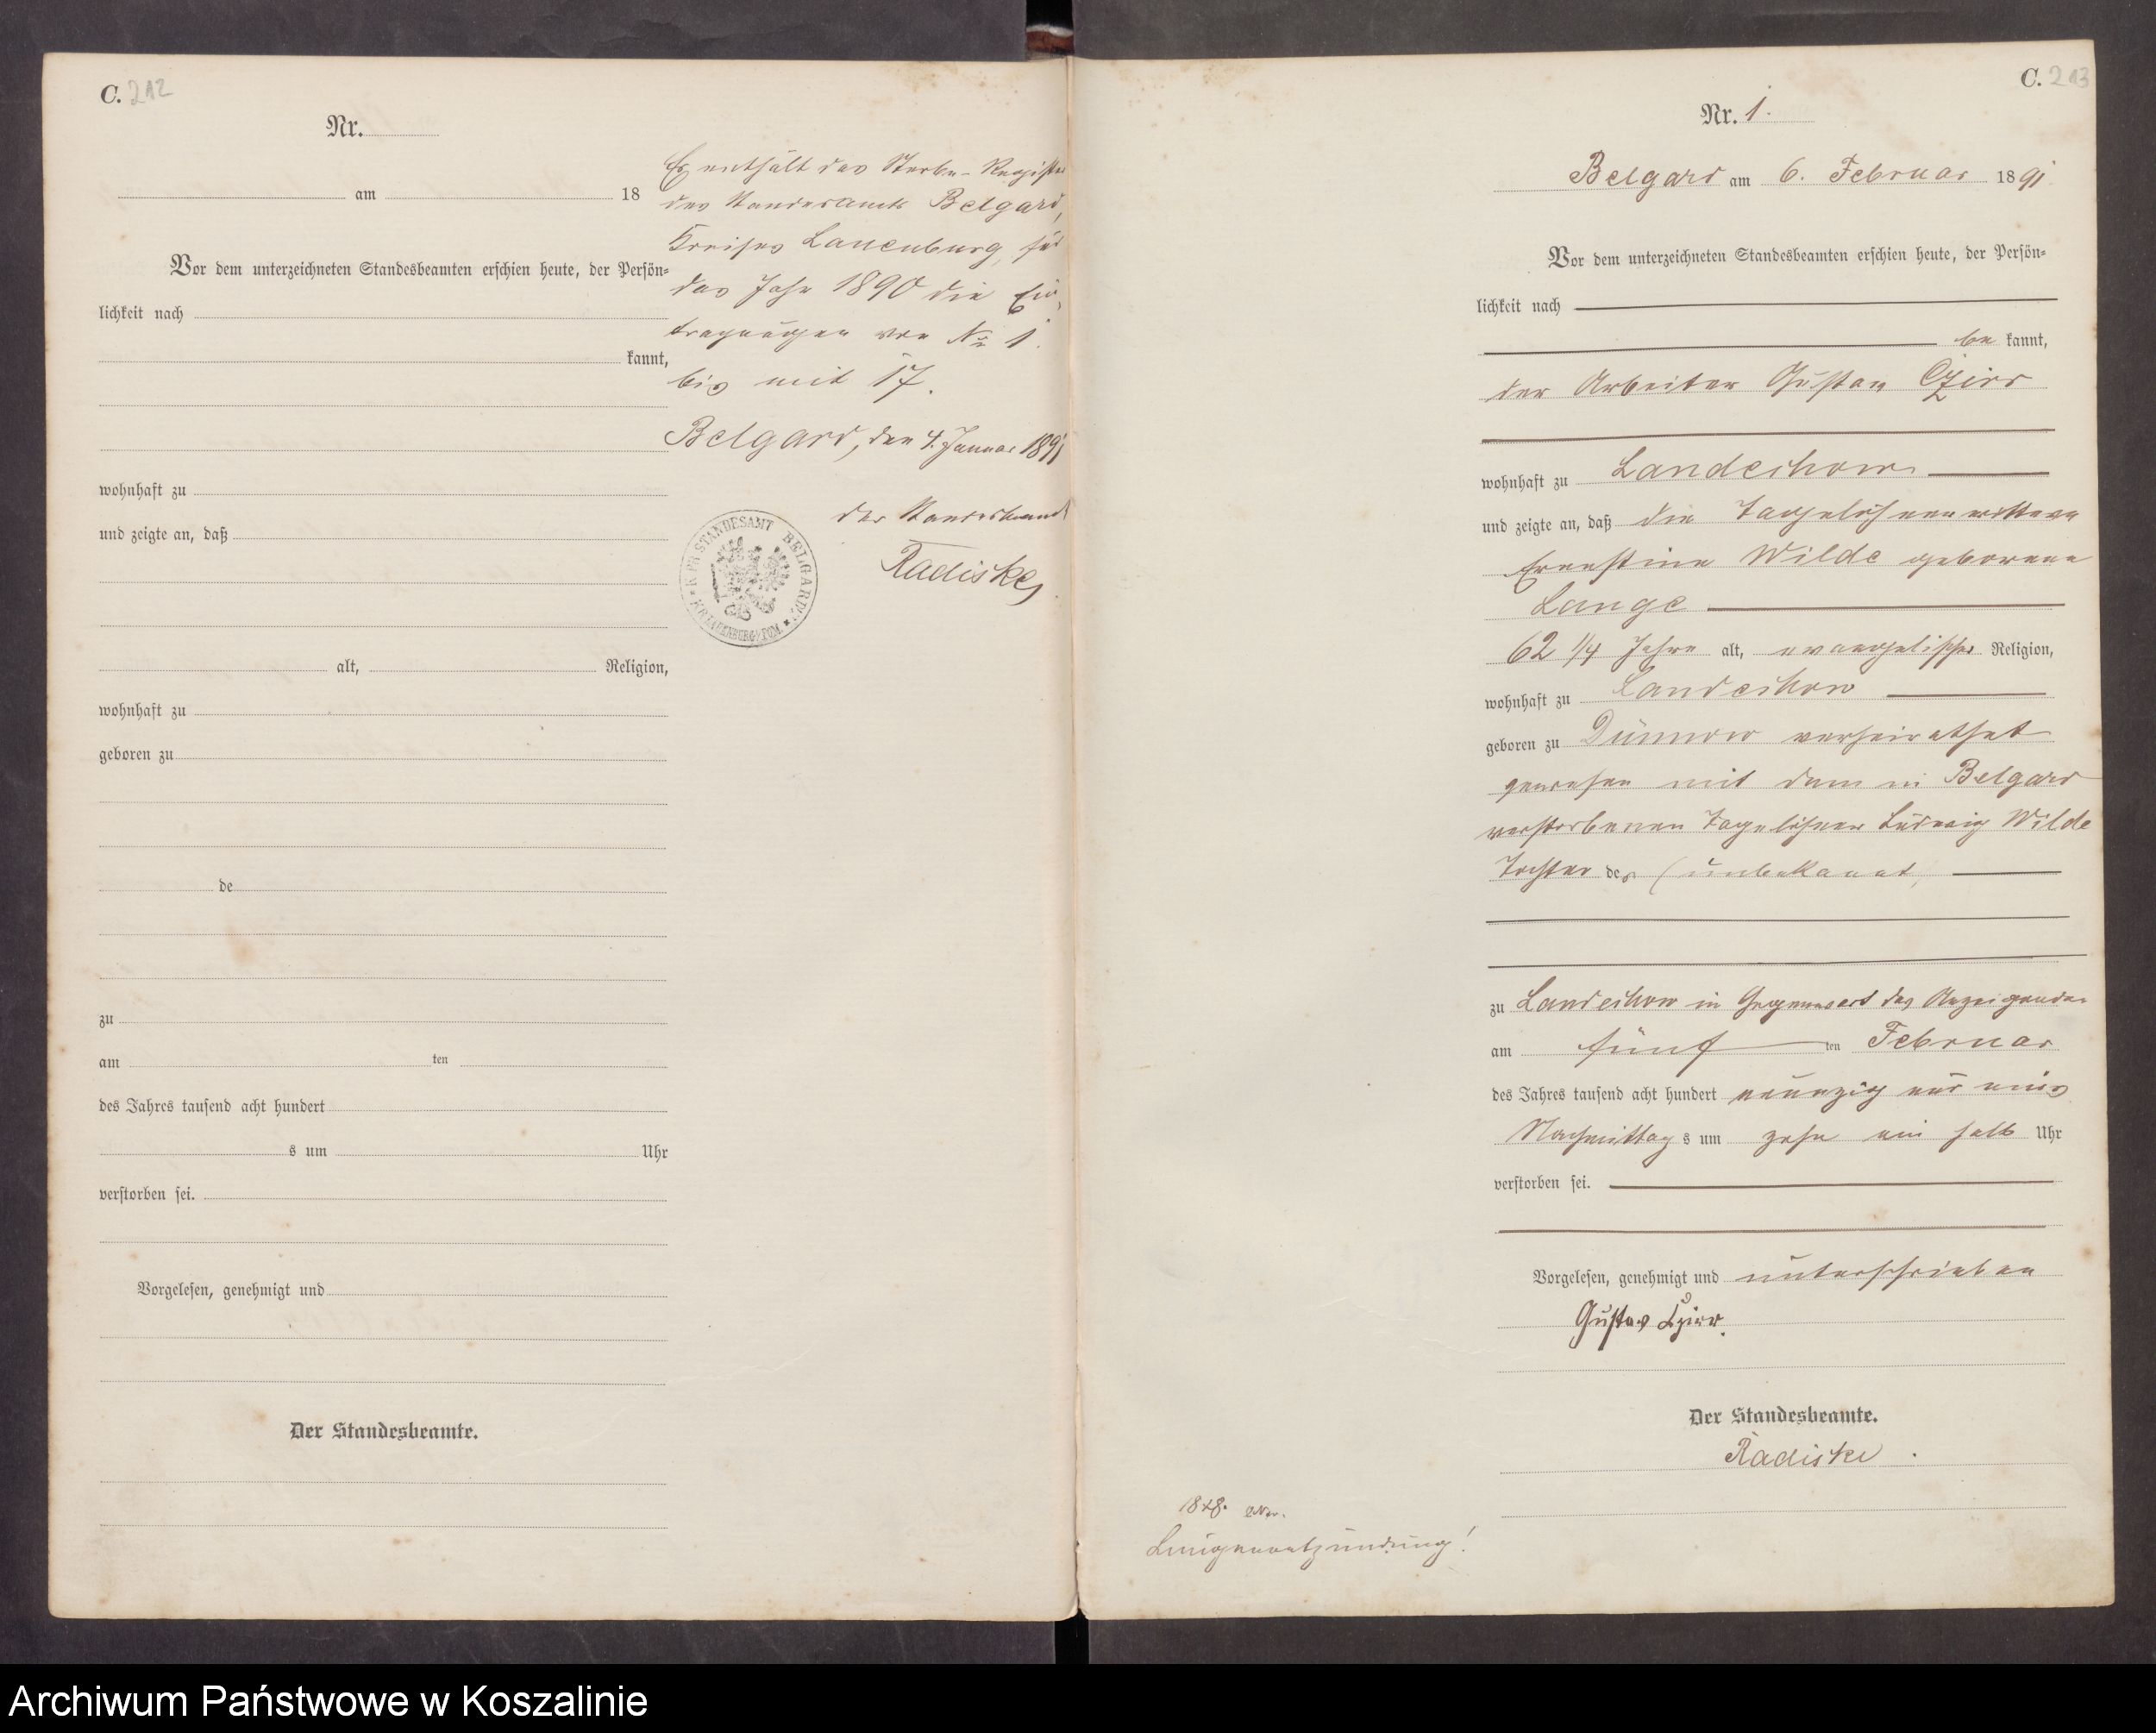 C. 212
Nr.
am 18
Vor dem unterzeichneten Standesbeamten erschien heute, der Persön-
lichkeit nach
kannt,
wohnhaft zu
und zeigte an, daß
alt, Religion,
wohnhaft zu
geboren zu
de
zu
am ten
des Jahres tausend acht hundert
s um Uhr
verstorben sei.
Vorgelesen, genehmigt und
Der Standesbeamte.
Es enthält das Sterbe-Register
des Standesamts Belgard,
Kreises Lauenburg, für
das Jahr 1890 die Ein-
tragungen von No 1.
bis mit 17.
Belgard, den 4. Januar 1891
der Standesbeamte
Radiske
K. PR. STANDESAMT BELGARD
KR. LAUENBURG I/POM.
C. 213
Nr. 1.
Belgard am 6. Februar 1891
Vor dem unterzeichneten Standesbeamten erschien heute, der Persön-
lichkeit nach
be kannt,
der Arbeiter Gustav Czirr
wohnhaft zu Landechow
und zeigte an, daß die Tagelöhnerwittwe
Ernestine Wilde geborene
Lange
62 1/4 Jahre alt, evangelischer Religion,
wohnhaft zu Landechow
geboren zu Dünnow verheirathet
gewesen mit dem in Belgard
verstorbenen Tagelöhner Ludwig Wilde
Tochter des (unbekannt)
zu Landechow in Gegenwart des Anzeigenden
am fünf ten Februar
des Jahres tausend acht hundert neunzig und eins
Nachmittag s um zehn ein halb Uhr
verstorben sei.
Vorgelesen, genehmigt und unterschrieben
Gustav Czirr.
Der Standesbeamte.
Radiske.
Lungenentzündung!
Archiwum Państwowe w Koszalinie